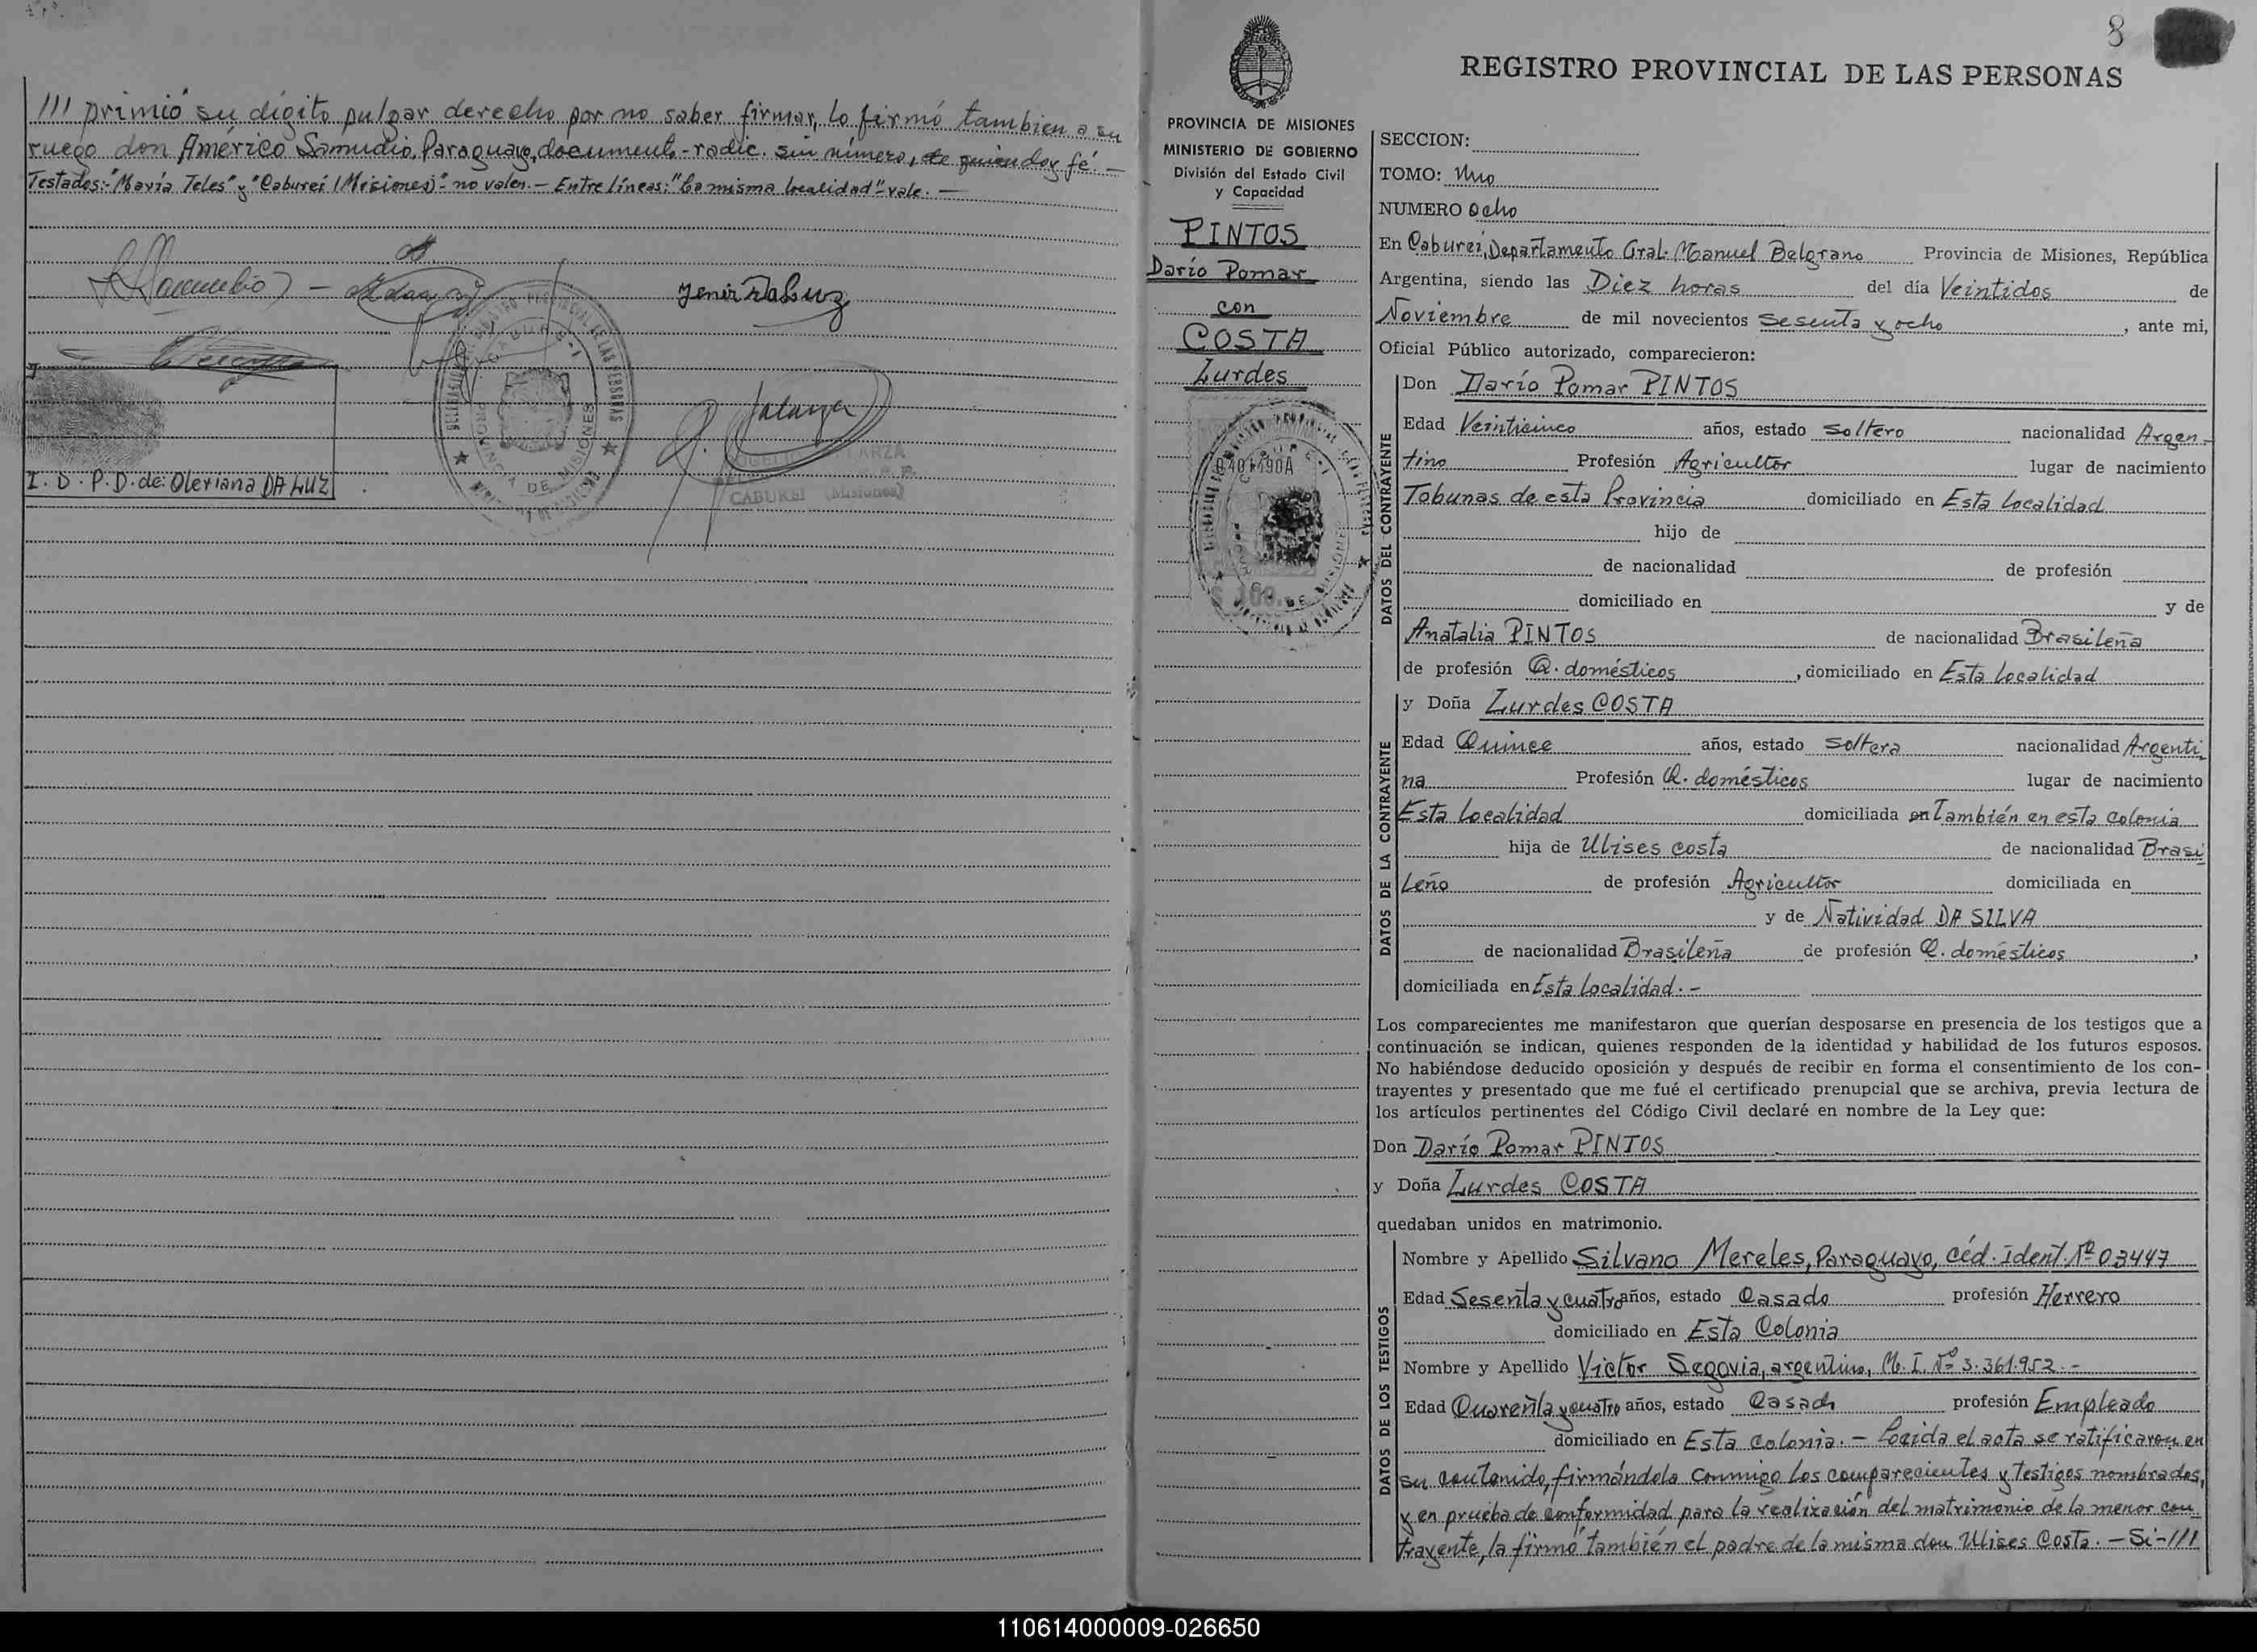 /// primió su dígito pulgar derecho por no saber firmar, lo firmó tambien a su
ruego don Américo Samudio, Paraguayo, documento-radic. sin número, de quien doy fé.—
Testados:-"María Teles" y "Caburei (Misiones)"- no valen.— Entre líneas: "la misma localidad"- vale.—
Yenir Da Luz
I. D. P. D. de: Oleriana DA LUZ
CABUREI (Misiones)
8
REGISTRO PROVINCIAL DE LAS PERSONAS
PROVINCIA DE MISIONES
MINISTERIO DE GOBIERNO
División del Estado Civil
y Capacidad
PINTOS
Darío Pomar
con
COSTA
Lurdes
SECCION:
TOMO: Uno
NUMERO Ocho
En Caburei, Departamento Gral. Manuel Belgrano Provincia de Misiones, República
Argentina, siendo las Diez horas del día Veintidos de
Noviembre de mil novecientos sesenta y ocho, ante mi,
Oficial Público autorizado, comparecieron:
DATOS DEL CONTRAYENTE
Don Darío Pomar PINTOS
Edad Veinticinco años, estado soltero nacionalidad Argen-
tino Profesión Agricultor lugar de nacimiento
Tobunas de esta Provincia domiciliado en Esta localidad
hijo de
de nacionalidad de profesión
domiciliado en y de
Anatalia PINTOS de nacionalidad Brasileña
de profesión Q. domésticos, domiciliado en Esta localidad
DATOS DE LA CONTRAYENTE
y Doña Lurdes COSTA
Edad Quince años, estado soltera nacionalidad Argenti
na Profesión Q. domésticos lugar de nacimiento
Esta localidad domiciliada en También en esta colonia
hija de Ulises costa de nacionalidad Brasi
leño de profesión Agricultor domiciliada en
y de Natividad DA SILVA
de nacionalidad Brasileña de profesión Q. domésticos,
domiciliada en Esta localidad.-
Los comparecientes me manifestaron que querían desposarse en presencia de los testigos que a
continuación se indican, quienes responden de la identidad y habilidad de los futuros esposos.
No habiéndose deducido oposición y después de recibir en forma el consentimiento de los con-
trayentes y presentado que me fué el certificado prenupcial que se archiva, previa lectura de
los artículos pertinentes del Código Civil declaré en nombre de la Ley que:
Don Darío Pomar PINTOS
y Doña Lurdes COSTA
quedaban unidos en matrimonio.
DATOS DE LOS TESTIGOS
Nombre y Apellido Silvano Mereles, Paraguayo, Céd. Ident. Nº 03447
Edad Sesenta y cuatro años, estado Casado profesión Herrero
domiciliado en Esta Colonia
Nombre y Apellido Victor Segovia, argentino, M. I. Nº 3.361.952.-
Edad Cuarenta y cuatro años, estado Casado profesión Empleado
domiciliado en Esta colonia.— Leida el acta se ratificaron en
su contenido, firmándola conmigo los comparecientes y testigos nombrados,
y en prueba de conformidad para la realización del matrimonio de la menor con
trayente, la firmó también el padre de la misma don Ulises Costa.— Si-///
110614000009-026650